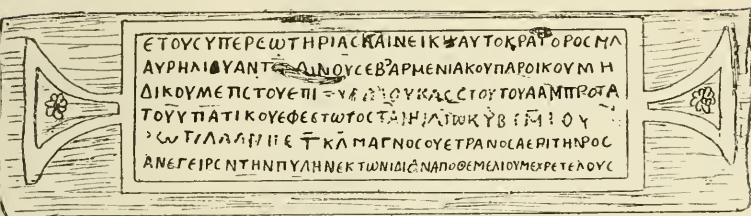 ΕΤΟΥϹΥΠΕΡΕωΤΗΡΙΑϹΚΑΙΝΕΙΚ ΑΥΤΟΚΡΑΤΟΡΟϹΜΛ
ΑΥΡΗΛΙΟΥΑΝΤ ΝΙΝΟΥϹΕΒ ΑΡΜΕΝΙΑΚΟΥΠΑΡΟΙΚΟΥΜΗ
ΔΙΚΟΥΜΕΠϹΤΟΥΕΠΙ ΟΥΚΑϹϹΤΟΥΤΟΥΛΑΜΠΡΟΤΑ
ΤΟΥΥΠΑΤΙΚΟΥΕΦΕϹΤωΤΟϹ
ΤΚΛΜΑΓΝΟϹΟΥΕΤΡΑΝΟϹΑΕΡΙΤΗΝΡΟϹ
ΑΝΕΓΕΙΡϹΝΤΗΝΠΥΛΗΝΕΚΤωΝΙΔΙωΝΑΠΟΘΕΜΕΛΙΟΥΜΕΧΡΕΤΕΛΟΥϹ